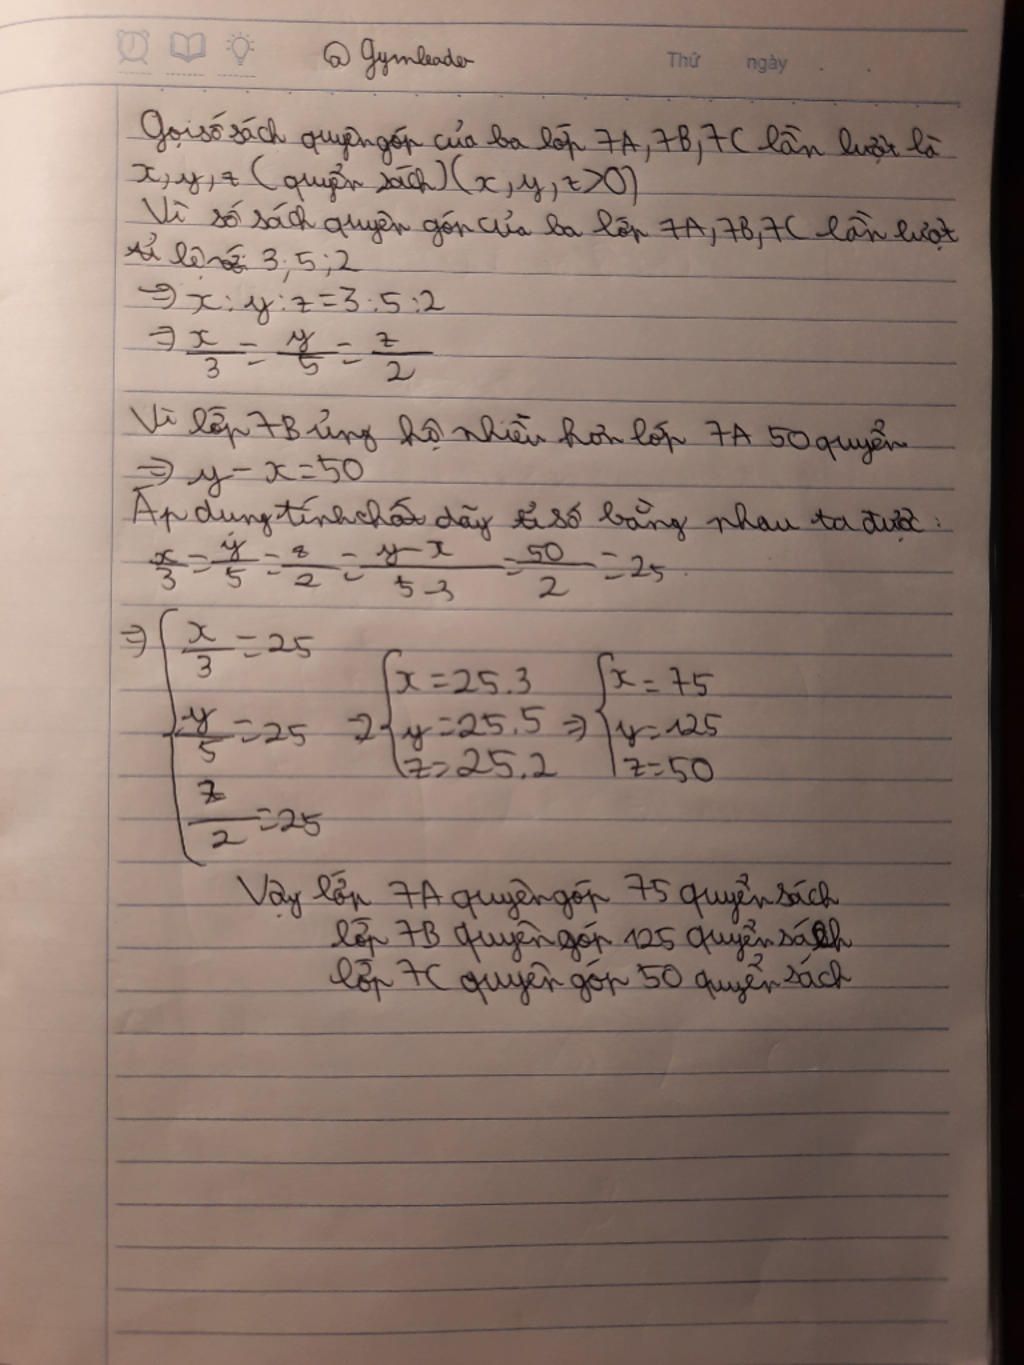 @ Gymleader
Thứ ngày . .
Gọi số sách quyên góp của ba lớp 7A, 7B, 7C lần lượt là
x, y, z (quyển sách) (x, y, z > 0)
Vì số sách quyên góp của ba lớp 7A, 7B, 7C lần lượt
tỉ lệ với 3; 5; 2
⇒ x : y : z = 3 : 5 : 2
⇒ x/3 = y/5 = z/2
Vì lớp 7B ủng hộ nhiều hơn lớp 7A 50 quyển
⇒ y - x = 50
Áp dụng tính chất dãy tỉ số bằng nhau ta được :
x/3 = y/5 = z/2 = y-x/5-3 = 50/2 = 25.
⇒ { x/3 = 25
y/5 = 25
z/2 = 25
⇒ { x = 25.3
y = 25.5
z = 25.2
⇒ { x = 75
y = 125
z = 50
Vậy lớp 7A quyên góp 75 quyển sách
lớp 7B quyên góp 125 quyển sách
lớp 7C quyên góp 50 quyển sách